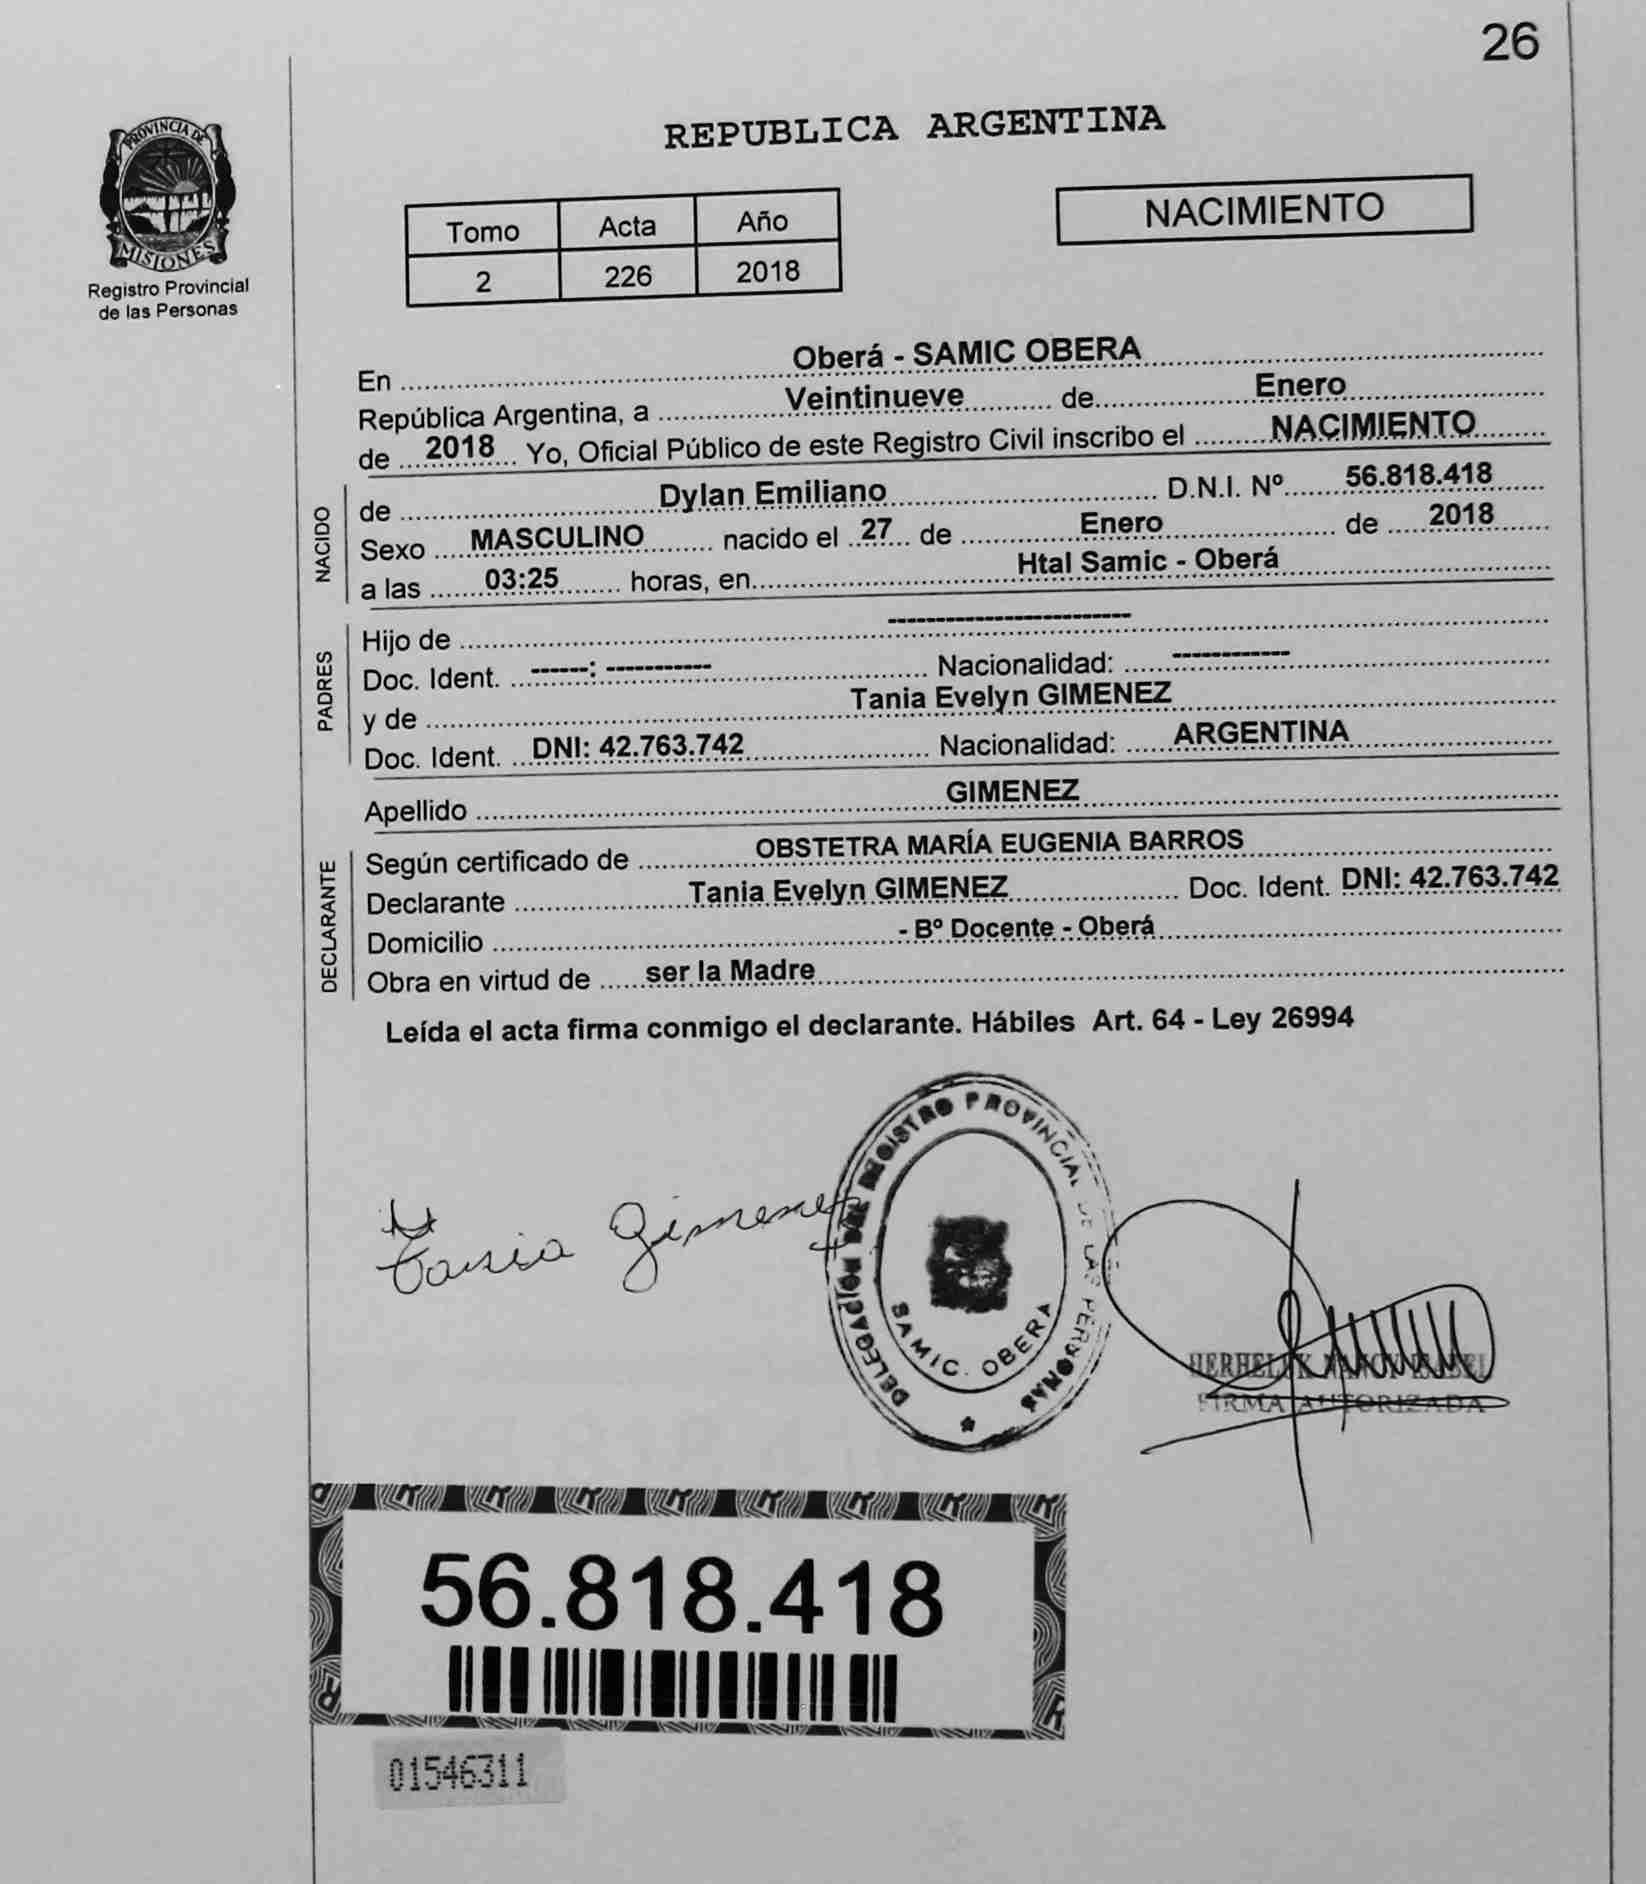 26
PROVINCIA DE
MISIONES
Registro Provincial
de las Personas
REPUBLICA ARGENTINA
Tomo Acta Año
2 226 2018
NACIMIENTO
En Oberá - SAMIC OBERA
República Argentina, a Veintinueve de Enero
de 2018 Yo, Oficial Público de este Registro Civil inscribo el NACIMIENTO
NACIDO
de Dylan Emiliano D.N.I. Nº 56.818.418
Sexo MASCULINO nacido el 27 de Enero de 2018
a las 03:25 horas, en Htal Samic - Oberá
PADRES
Hijo de -------------------------
Doc. Ident. ------: ----------- Nacionalidad: ------------
y de Tania Evelyn GIMENEZ
Doc. Ident. DNI: 42.763.742 Nacionalidad: ARGENTINA
Apellido GIMENEZ
DECLARANTE
Según certificado de OBSTETRA MARÍA EUGENIA BARROS
Declarante Tania Evelyn GIMENEZ Doc. Ident. DNI: 42.763.742
Domicilio - Bº Docente - Oberá
Obra en virtud de ser la Madre
Leída el acta firma conmigo el declarante. Hábiles Art. 64 - Ley 26994
Tania Gimenez
DELEGACIÓN DEL REGISTRO PROVINCIAL DE LAS PERSONAS
SAMIC. OBERA
NANCY ISABEL
FIRMA AUTORIZADA
56.818.418
01546311